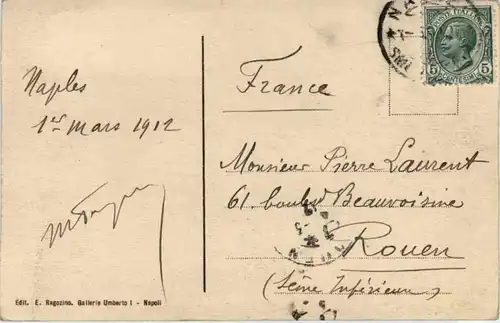 Naples
1er Mars 1912
Edit. E. Ragozino. Galleria Umberto I - Napoli
France
Monsieur Pierre Laurent
61. boulvd Beauvoisine
Rouen
(Seine Inférieure)
POSTE ITALIANE
5 CENTESIMI 5